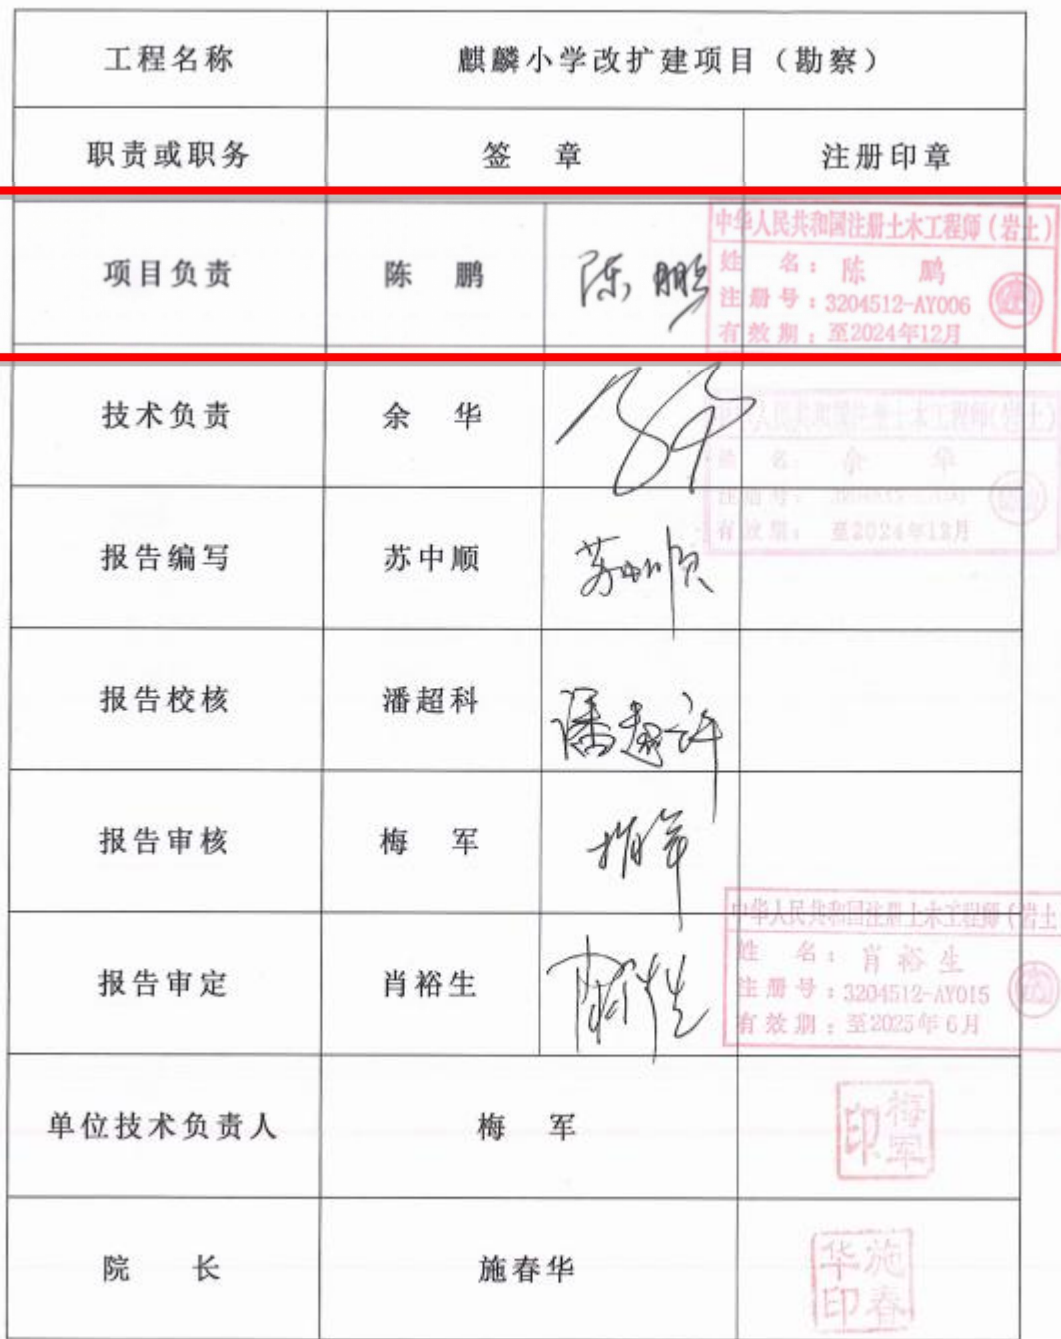 工程名称 麒麟小学改扩建项目（勘察）
职责或职务 签 章 注册印章
中华人民共和国注册土木工程师（岩土）
项目负责 陈 鹏 陈鹏 姓 名：陈 鹏
注册号：3204512-AY006
有效期：至2024年12月
技术负责 余 华
中华人民共和国注册土木工程师(岩土)
姓 名： 余 华
注册号：
有效期： 至2024年12月
报告编写 苏中顺 苏中顺
报告校核 潘超科
报告审核 梅 军 梅军
中华人民共和国注册土木工程师（岩土
报告审定 肖裕生 姓 名：肖裕生
注册号：3204512-AY015
有效期：至2025年6月
单位技术负责人 梅 军 梅军印
院 长 施春华 施春华印